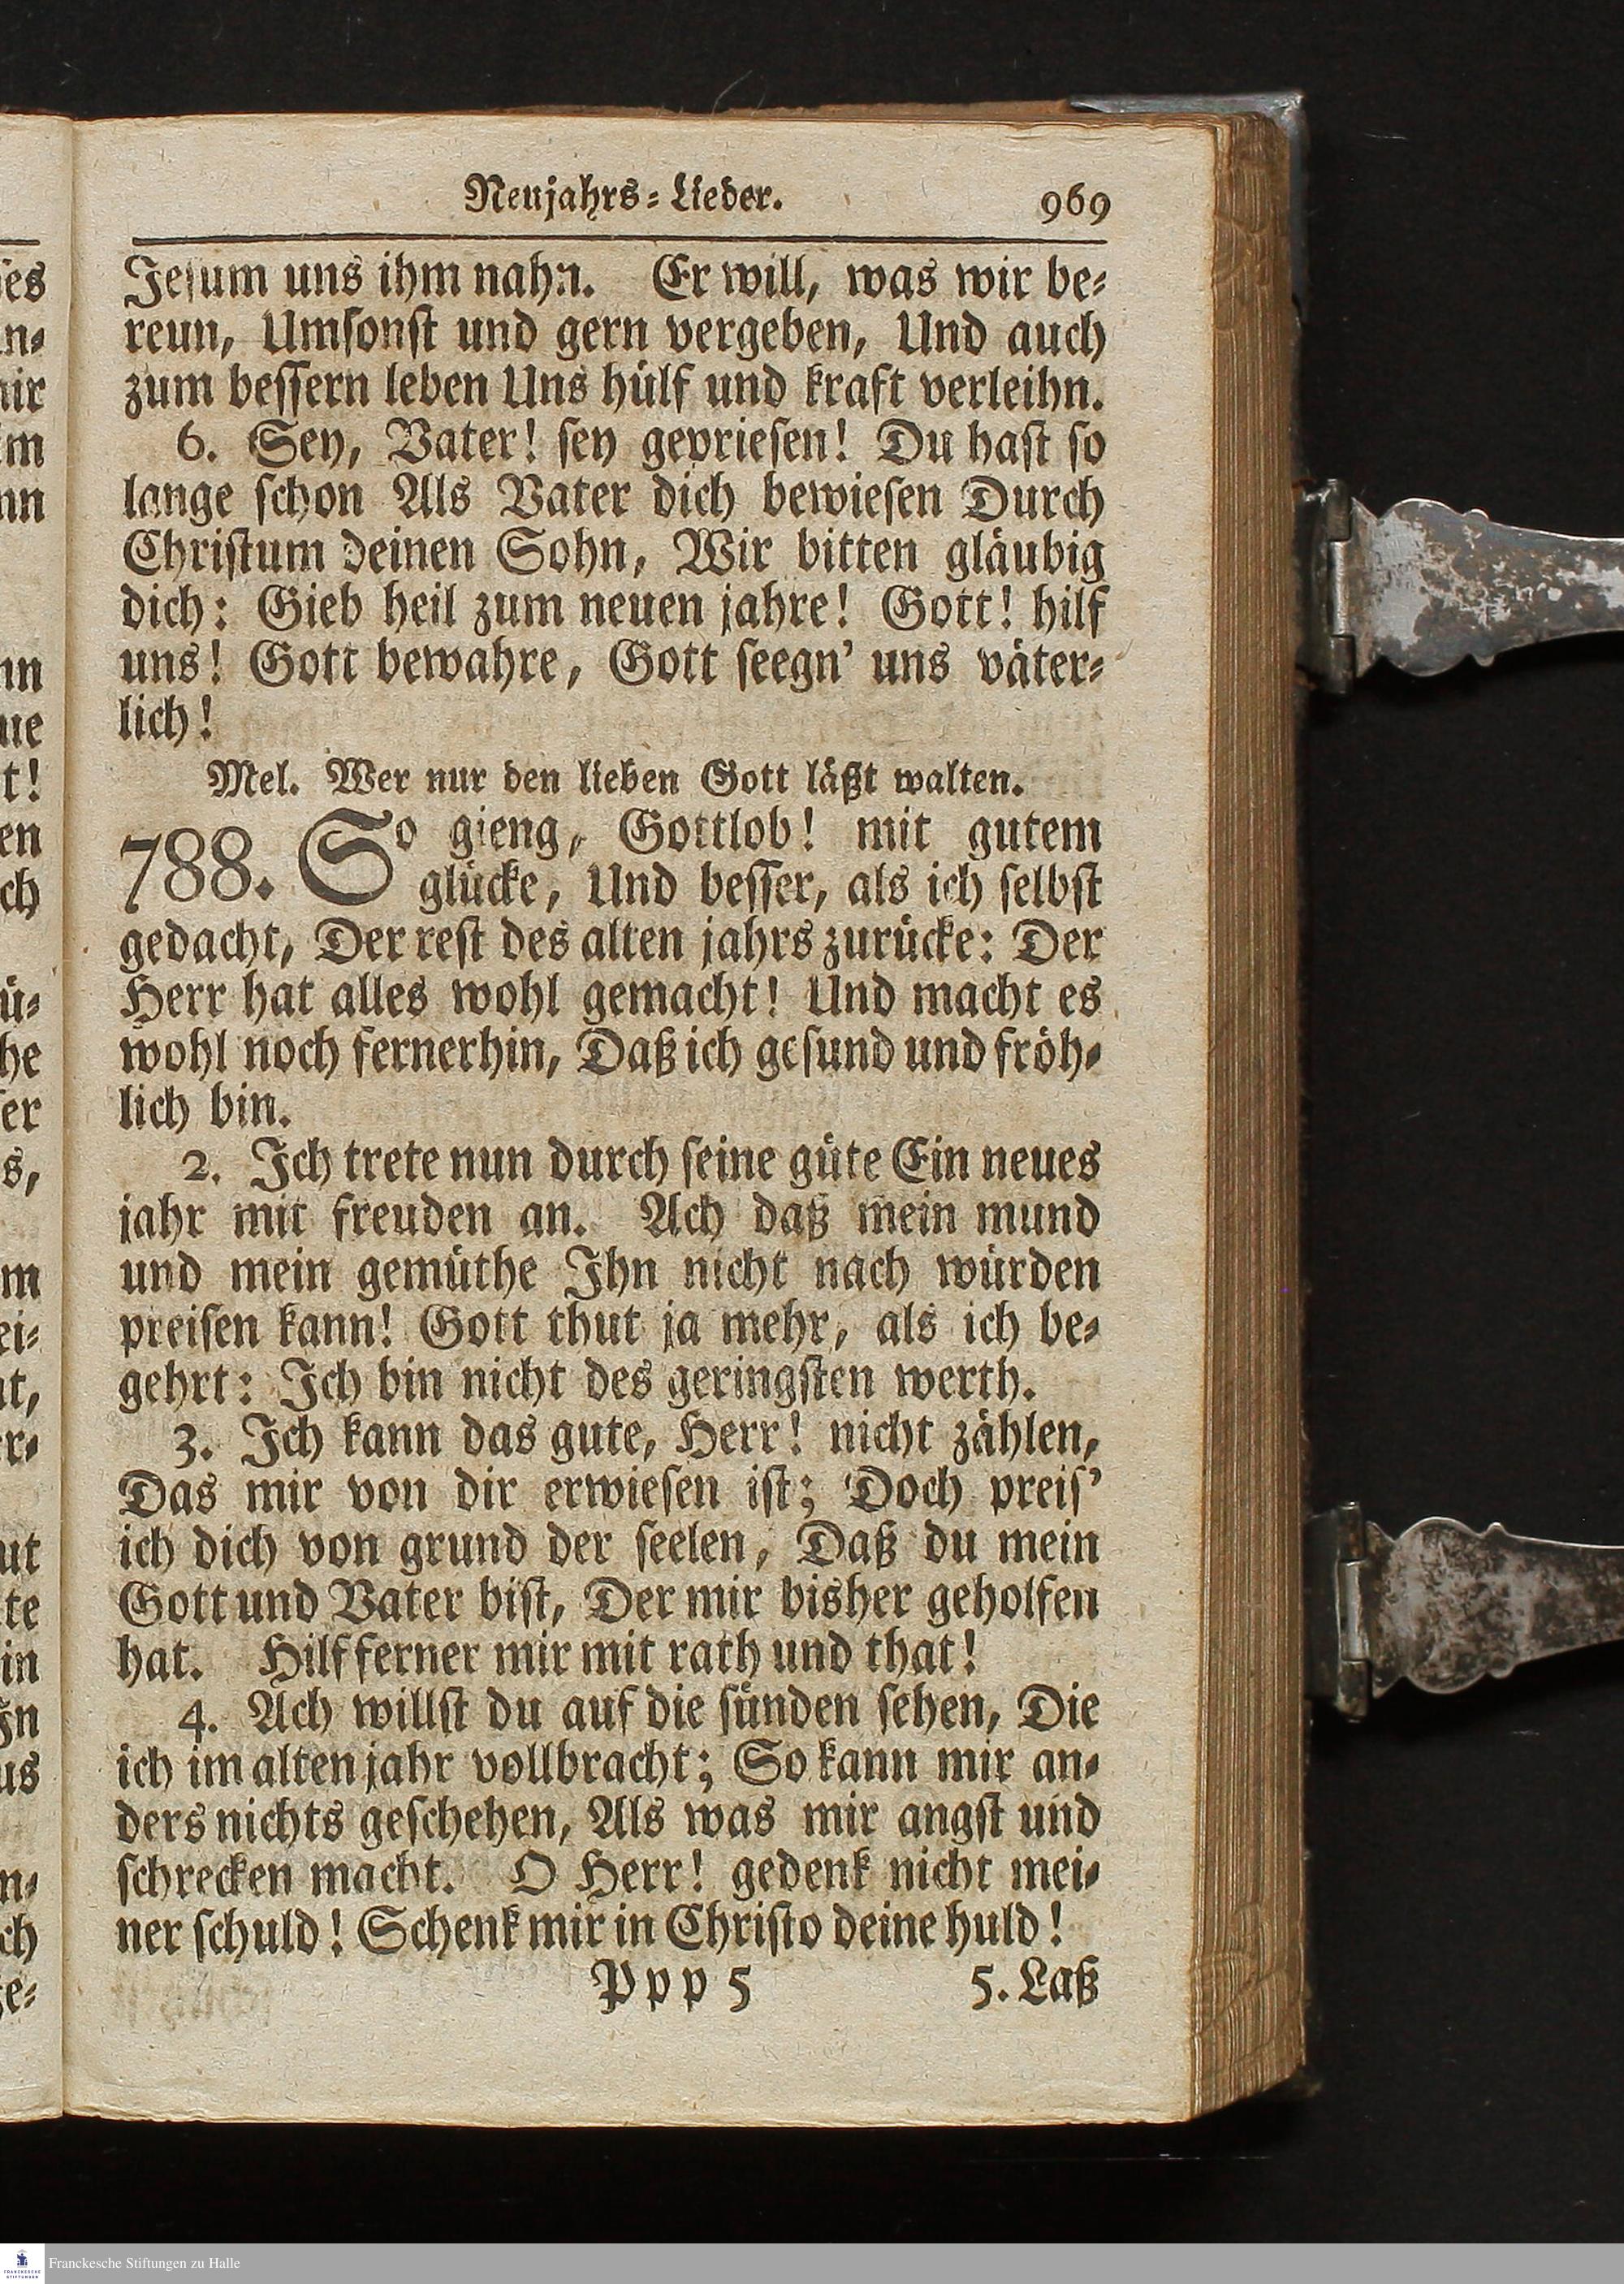 Neujahrs-Lieder. 969
Jesum uns ihm nahn. Er will, was wir be-
reun, Umsonst und gern vergeben, Und auch
zum bessern leben Uns hülf und kraft verleihn.
6. Sey, Vater! sey gepriesen! Du hast so
lange schon Als Vater dich bewiesen Durch
Christum deinen Sohn, Wir bitten gläubig
dich: Gieb heil zum neuen jahre! Gott! hilf
uns! Gott bewahre, Gott seegn' uns väter-
lich!
Mel. Wer nur den lieben Gott läßt walten.
788. So gieng, Gottlob! mit gutem
glücke, Und besser, als ich selbst
gedacht, Der rest des alten jahrs zurücke: Der
Herr hat alles wohl gemacht! Und macht es
wohl noch fernerhin, Daß ich gesund und fröh-
lich bin.
2. Ich trete nun durch seine güte Ein neues
jahr mit freuden an. Ach daß mein mund
und mein gemüthe Ihn nicht nach würden
preisen kann! Gott thut ja mehr, als ich be-
gehrt: Ich bin nicht des geringsten werth.
3. Ich kann das gute, Herr! nicht zählen,
Das mir von dir erwiesen ist; Doch preis'
ich dich von grund der seelen, Daß du mein
Gott und Vater bist, Der mir bisher geholfen
hat. Hilf ferner mir mit rath und that!
4. Ach willst du auf die sünden sehen, Die
ich im alten jahr vollbracht; So kann mir an-
ders nichts geschehen, Als was mir angst und
schrecken macht. O Herr! gedenk nicht mei-
ner schuld! Schenk mir in Christo deine huld!
Ppp 5 5. Laß
Franckesche Stiftungen zu Halle